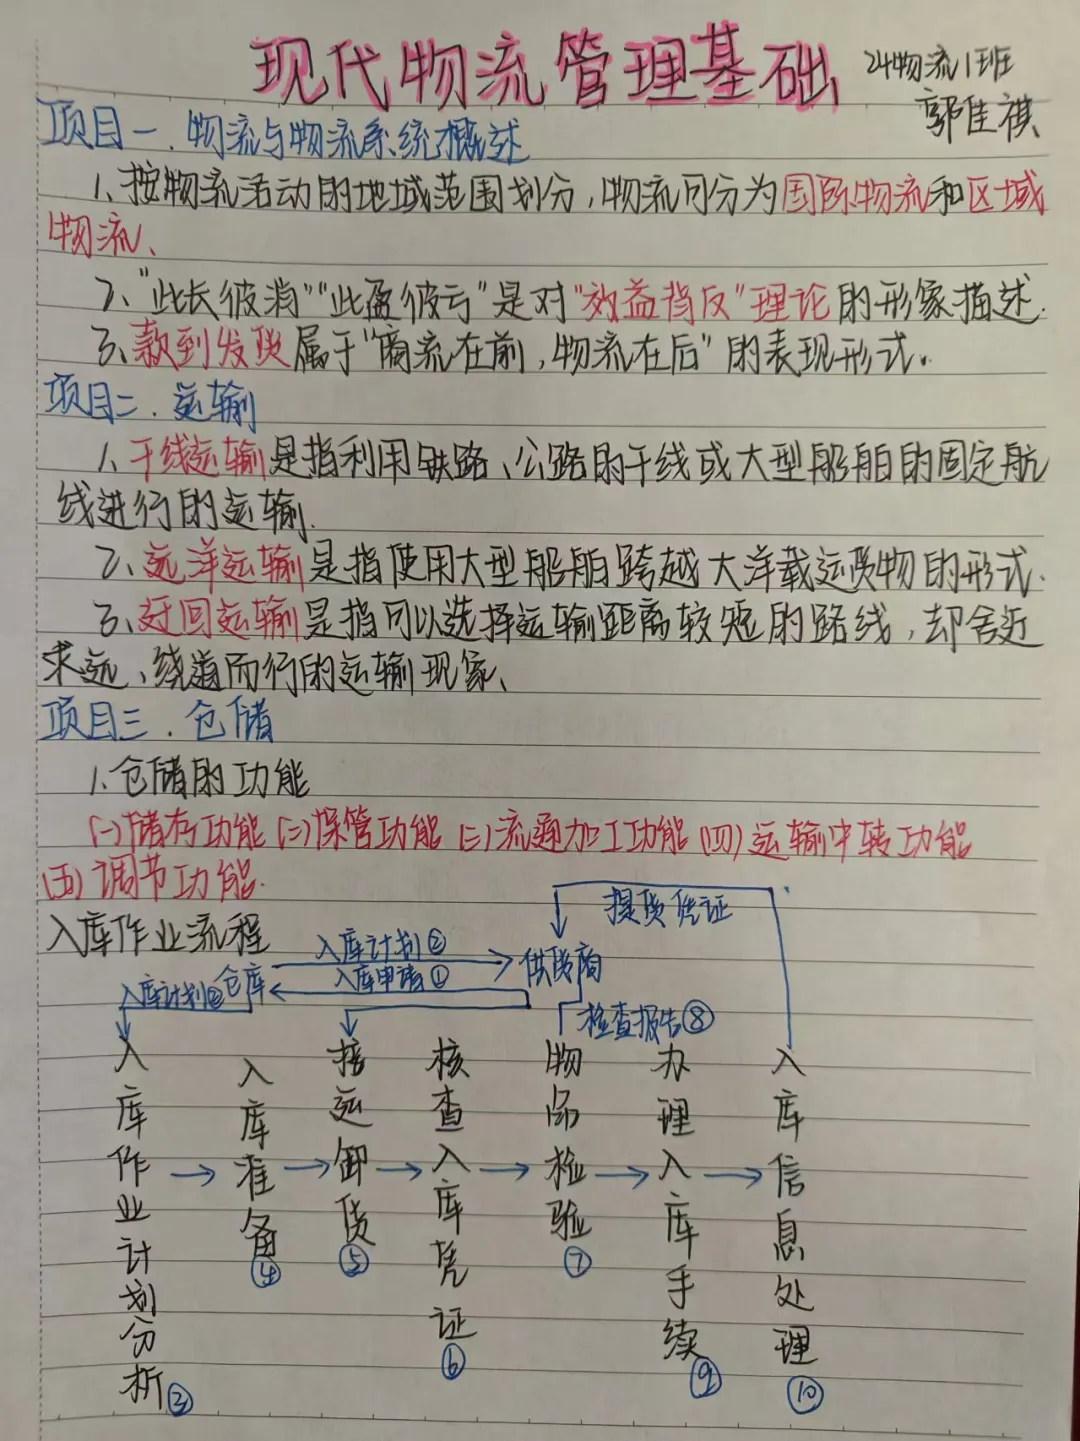 现代物流管理基础
24物流1班
郭佳祺
项目一.物流与物流系统概述
1、按物流活动的地域范围划分,物流可分为国际物流和区域
物流、
2、"此长彼消""此盈彼亏"是对"效益背反"理论的形象描述.
3、款到发货属于"商流在前,物流在后"的表现形式。
项目二.运输
1、干线运输是指利用铁路、公路的干线或大型船舶的固定航
线进行的运输.
2、远洋运输是指使用大型船舶跨越大洋载运货物的形式.
3、迂回运输是指可以选择运输距离较短的路线,却舍近
求远、绕道而行的运输现象、
项目三.仓储
1.仓储的功能
(一)储存功能(二)保管功能(三)流通加工功能(四)运输中转功能
(五)调节功能.
入库作业流程
提货凭证
入库计划②
仓库
供货商
入库申请①
入库计划②
检查报告⑧
入库作业计划分析③
入库准备④
接运卸货⑤
核查入库凭证⑥
物品检验⑦
办理入库手续⑨
入库信息处理⑩